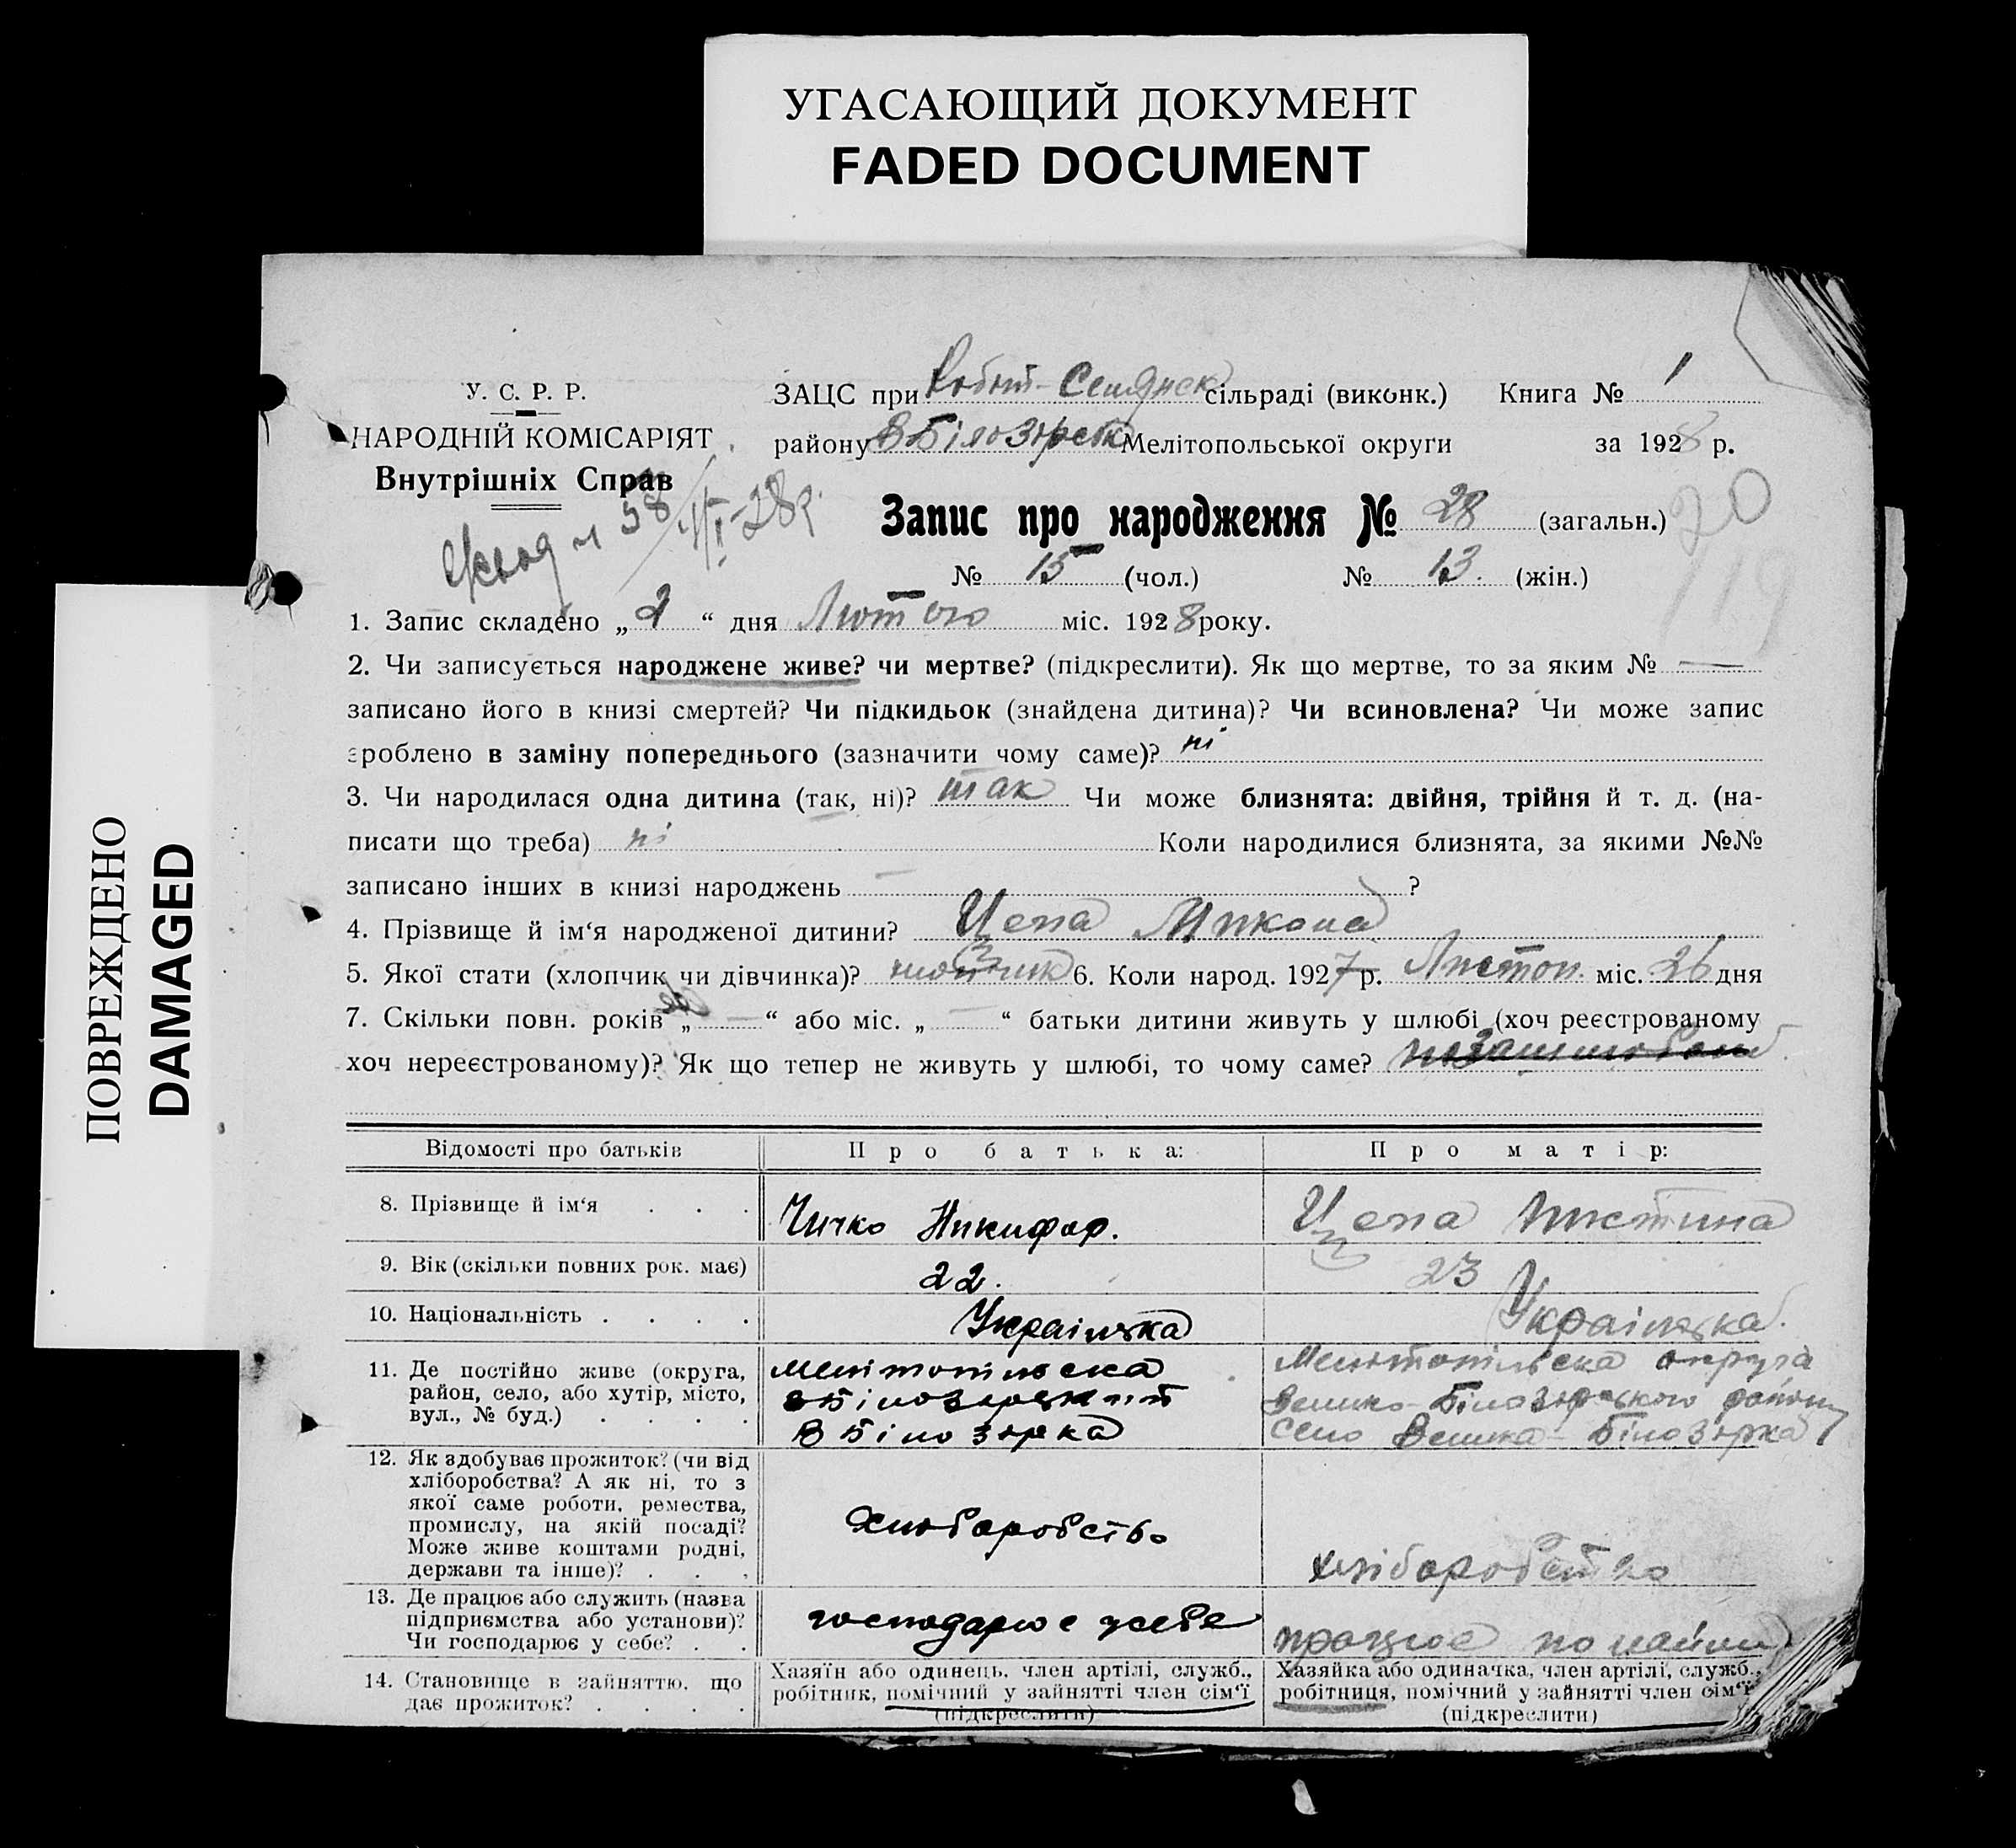 УГАСАЮЩИЙ ДОКУМЕНТ
FADED DOCUMENT
ПОВРЕЖДЕНО
DAMAGED
У. С. Р. Р.
НАРОДНІЙ КОМІСАРІЯТ
Внутрішніх Справ
ЗАЦС при сільраді (виконк.) Книга № 1
району В Білозірськ Мелітопольської округи за 1928 р.
20
Запис про народження № 28 (загальн.)
№ 15 (чол.) № 13. (жін.)
119
1. Запис складено „2“ дня Лютого міс. 1928 року.
2. Чи записується народжене живе? чи мертве? (підкреслити). Як що мертве, то за яким № —
записано його в книзі смертей? Чи підкидьок (знайдена дитина)? Чи всиновлена? Чи може запис
зроблено в заміну попереднього (зазначити чому саме)? ні
3. Чи народилася одна дитина (так, ні)? так Чи може близнята: двійня, трійня й т. д. (на-
писати що треба) ні Коли народилися близнята, за якими №№
записано інших в книзі народжень — ?
4. Прізвище й ім‘я народженої дитини? Цепа Микола
5. Якої стати (хлопчик чи дівчинка)? хлопчик 6. Коли народ. 1927 р. Листоп. міс. 26 дня
7. Скільки повн. років „ — “ або міс. „ — “ батьки дитини живуть у шлюбі (хоч реєстрованому
хоч нереєстрованому)? Як що тепер не живуть у шлюбі, то чому саме?
Відомості про батьків Про батька: Про матір:
8. Прізвище й ім‘я . . . Чичко Никифор. Цепа Христина
9. Вік (скільки повних рок. має) 22. 23
10. Національність . . . . Українська Українська.
11. Де постійно живе (округа, район, село, або хутір, місто, вул., № буд.) . . . .
Мелітопільска
В Білозірка
Мелітопільска округа
Велико-Білозірського району
село Велика-Білозірка
12. Як здобуває прожиток? (чи від хліборобства? А як ні, то з якої саме роботи, ремества, промислу, на якій посаді? Може живе коштами родні, держави та інше)? . . .
Хлоборобство
хліборобство
13. Де працює або служить (назва підприємства або установи)? Чи господарює у себе? . .
господарює у себе
працює по найму
14. Становище в зайняттю, що дає прожиток? . . . .
Хазяїн або одинець, член артілі, служб., робітник, помічний у зайнятті член сім‘ї (підкреслити)
Хазяйка або одиначка, член артілі, служб., робітниця, помічний у зайнятті член сім‘ї (підкреслити)